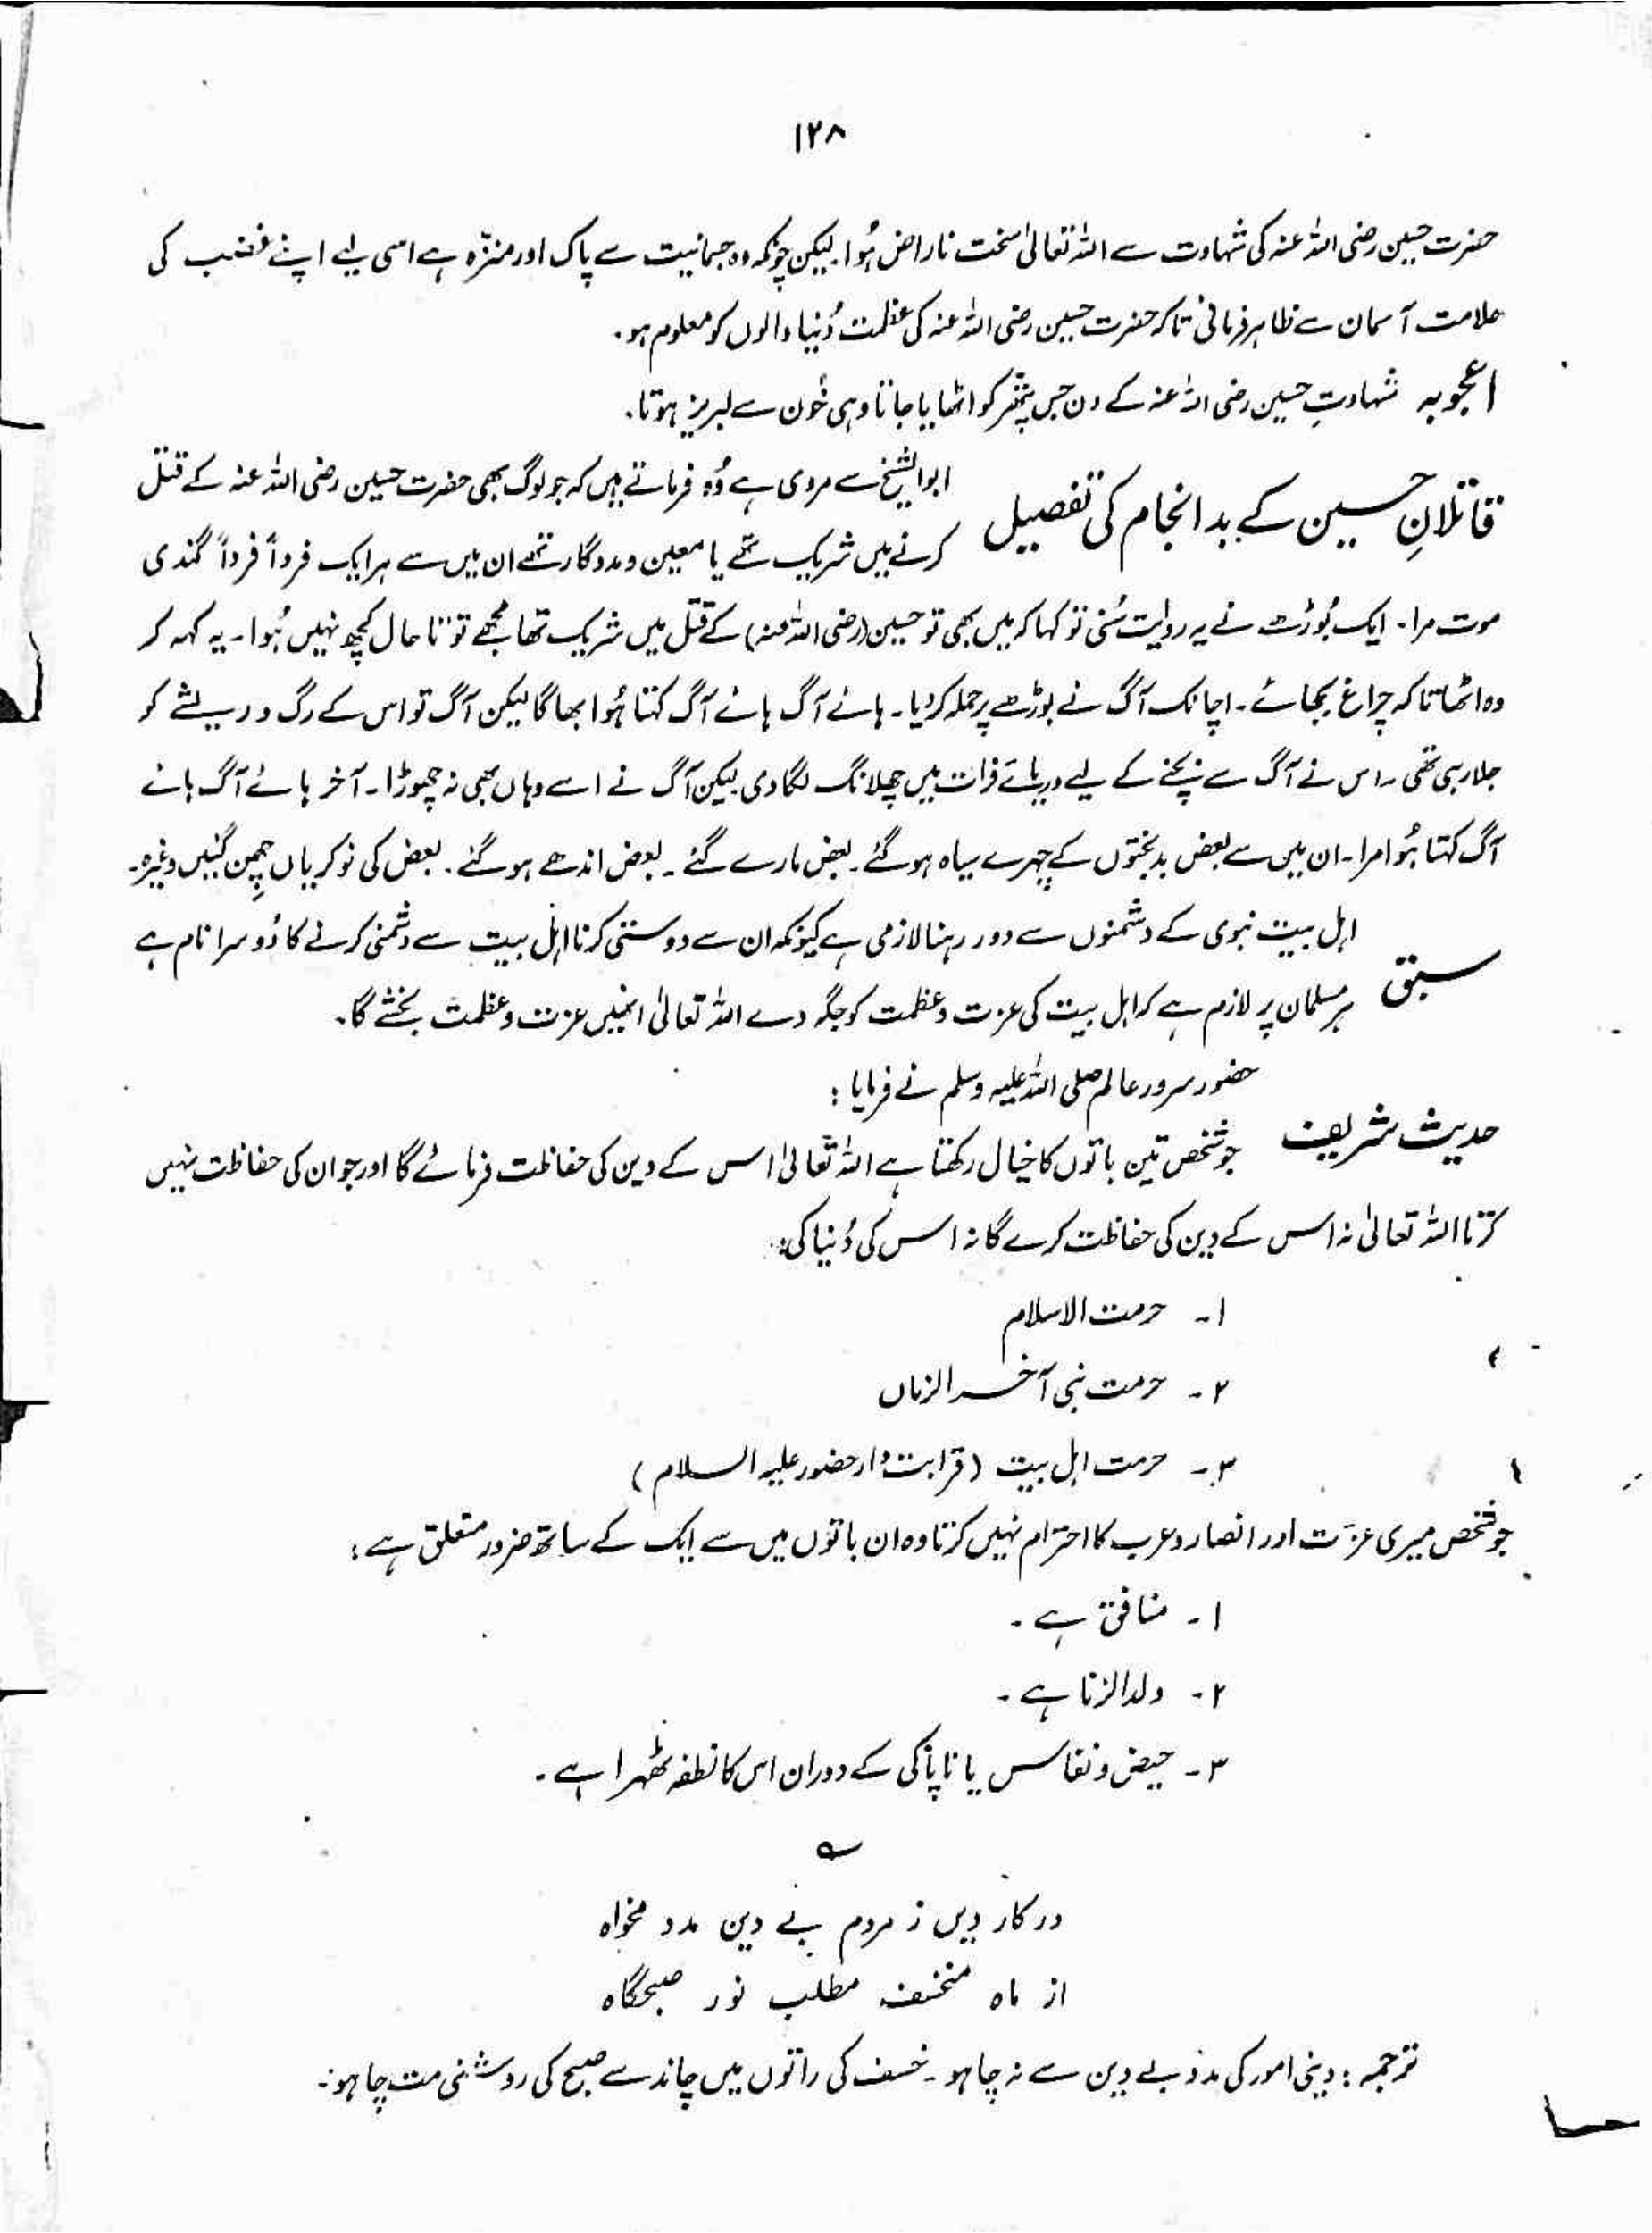 ۱۲۸
حضرت حسین رضی اللہ عنہ کی شہادت سے اللہ تعالیٰ سخت ناراض ہُوا لیکن چونکہ وہ جسمانیت سے پاک اور منزّہ ہے اسی لیے اپنے غضب کی
علامت آسمان سے ظاہر فرمائی تاکہ حضرت حسین رضی اللہ عنہ کی عظمت دُنیا والوں کو معلوم ہو۔
اعجوبہ شہادتِ حسین رضی اللہ عنہ کے دن جس پتھر کو اٹھایا جاتا وہی خُون سے لبریز ہوتا۔
قاتلانِ حسین کے بد انجام کی تفصیل ابوالشیخ سے مروی ہے وُہ فرماتے ہیں کہ جو لوگ بھی حضرت حسین رضی اللہ عنہ کے قتل
کرنے میں شریک تھے یا معین و مددگار تھے ان میں سے ہر ایک فرداً فرداً گندی
موت مرا۔ ایک بُوڑھے نے یہ روایت سُنی تو کہا کہ میں بھی تو حسین (رضی اللہ عنہ) کے قتل میں شریک تھا مجھے تو تا حال کچھ نہیں ہُوا۔ یہ کہہ کر
وہ اٹھا تاکہ چراغ بجھائے۔ اچانک آگ نے بوڑھے پر حملہ کر دیا۔ ہائے آگ ہائے آگ کہتا ہُوا بھاگا لیکن آگ تو اس کے رگ و ریشے کو
جلا رہی تھی۔ اس نے آگ سے بچنے کے لیے دریائے فرات میں چھلانگ لگا دی لیکن آگ نے اسے وہاں بھی نہ چھوڑا۔ آخر ہائے آگ ہائے
آگ کہتا ہُوا مرا۔ ان میں سے بعض بدبختوں کے چہرے سیاہ ہو گئے۔ بعض مارے گئے۔ بعض اندھے ہو گئے۔ بعض کی نوکریاں چھن گئیں وغیرہ۔
سبق اہل بیت نبوی کے دشمنوں سے دور رہنا لازمی ہے کیونکہ ان سے دوستی کرنا اہل بیت سے دشمنی کرنے کا دُوسرا نام ہے
ہر مسلمان پر لازم ہے کہ اہل بیت کی عزت و عظمت کو جگہ دے اللہ تعالیٰ انہیں عزت و عظمت بخشے گا۔
حضور سرور عالم صلی اللہ علیہ وسلم نے فرمایا :
حدیث شریف جو شخص تین باتوں کا خیال رکھتا ہے اللہ تعالیٰ اس کے دین کی حفاظت فرمائے گا اور جو ان کی حفاظت نہیں
کرتا اللہ تعالیٰ نہ اس کے دین کی حفاظت کرے گا نہ اس کی دُنیا کی :
۱۔ حرمت الاسلام
۲۔ حرمت نبی آخر الزماں
۳۔ حرمت اہل بیت (قرابت دار حضور علیہ السلام)
جو شخص میری عزت اور انصار و عرب کا احترام نہیں کرتا وہ ان باتوں میں سے ایک کے ساتھ ضرور متعلق ہے :
۱۔ منافق ہے۔
۲۔ ولد الزنا ہے۔
۳۔ حیض و نفاس یا ناپاکی کے دوران اس کا نطفہ ٹھہرا ہے۔
؎
در کار دیں ز مردم بے دین مدد مخواہ
از ماہ منخسف مطلب نور صبحگاہ
ترجمہ : دینی امور کی مدد بے دین سے نہ چاہو۔ خسف کی راتوں میں چاند سے صبح کی روشنی مت چاہو۔